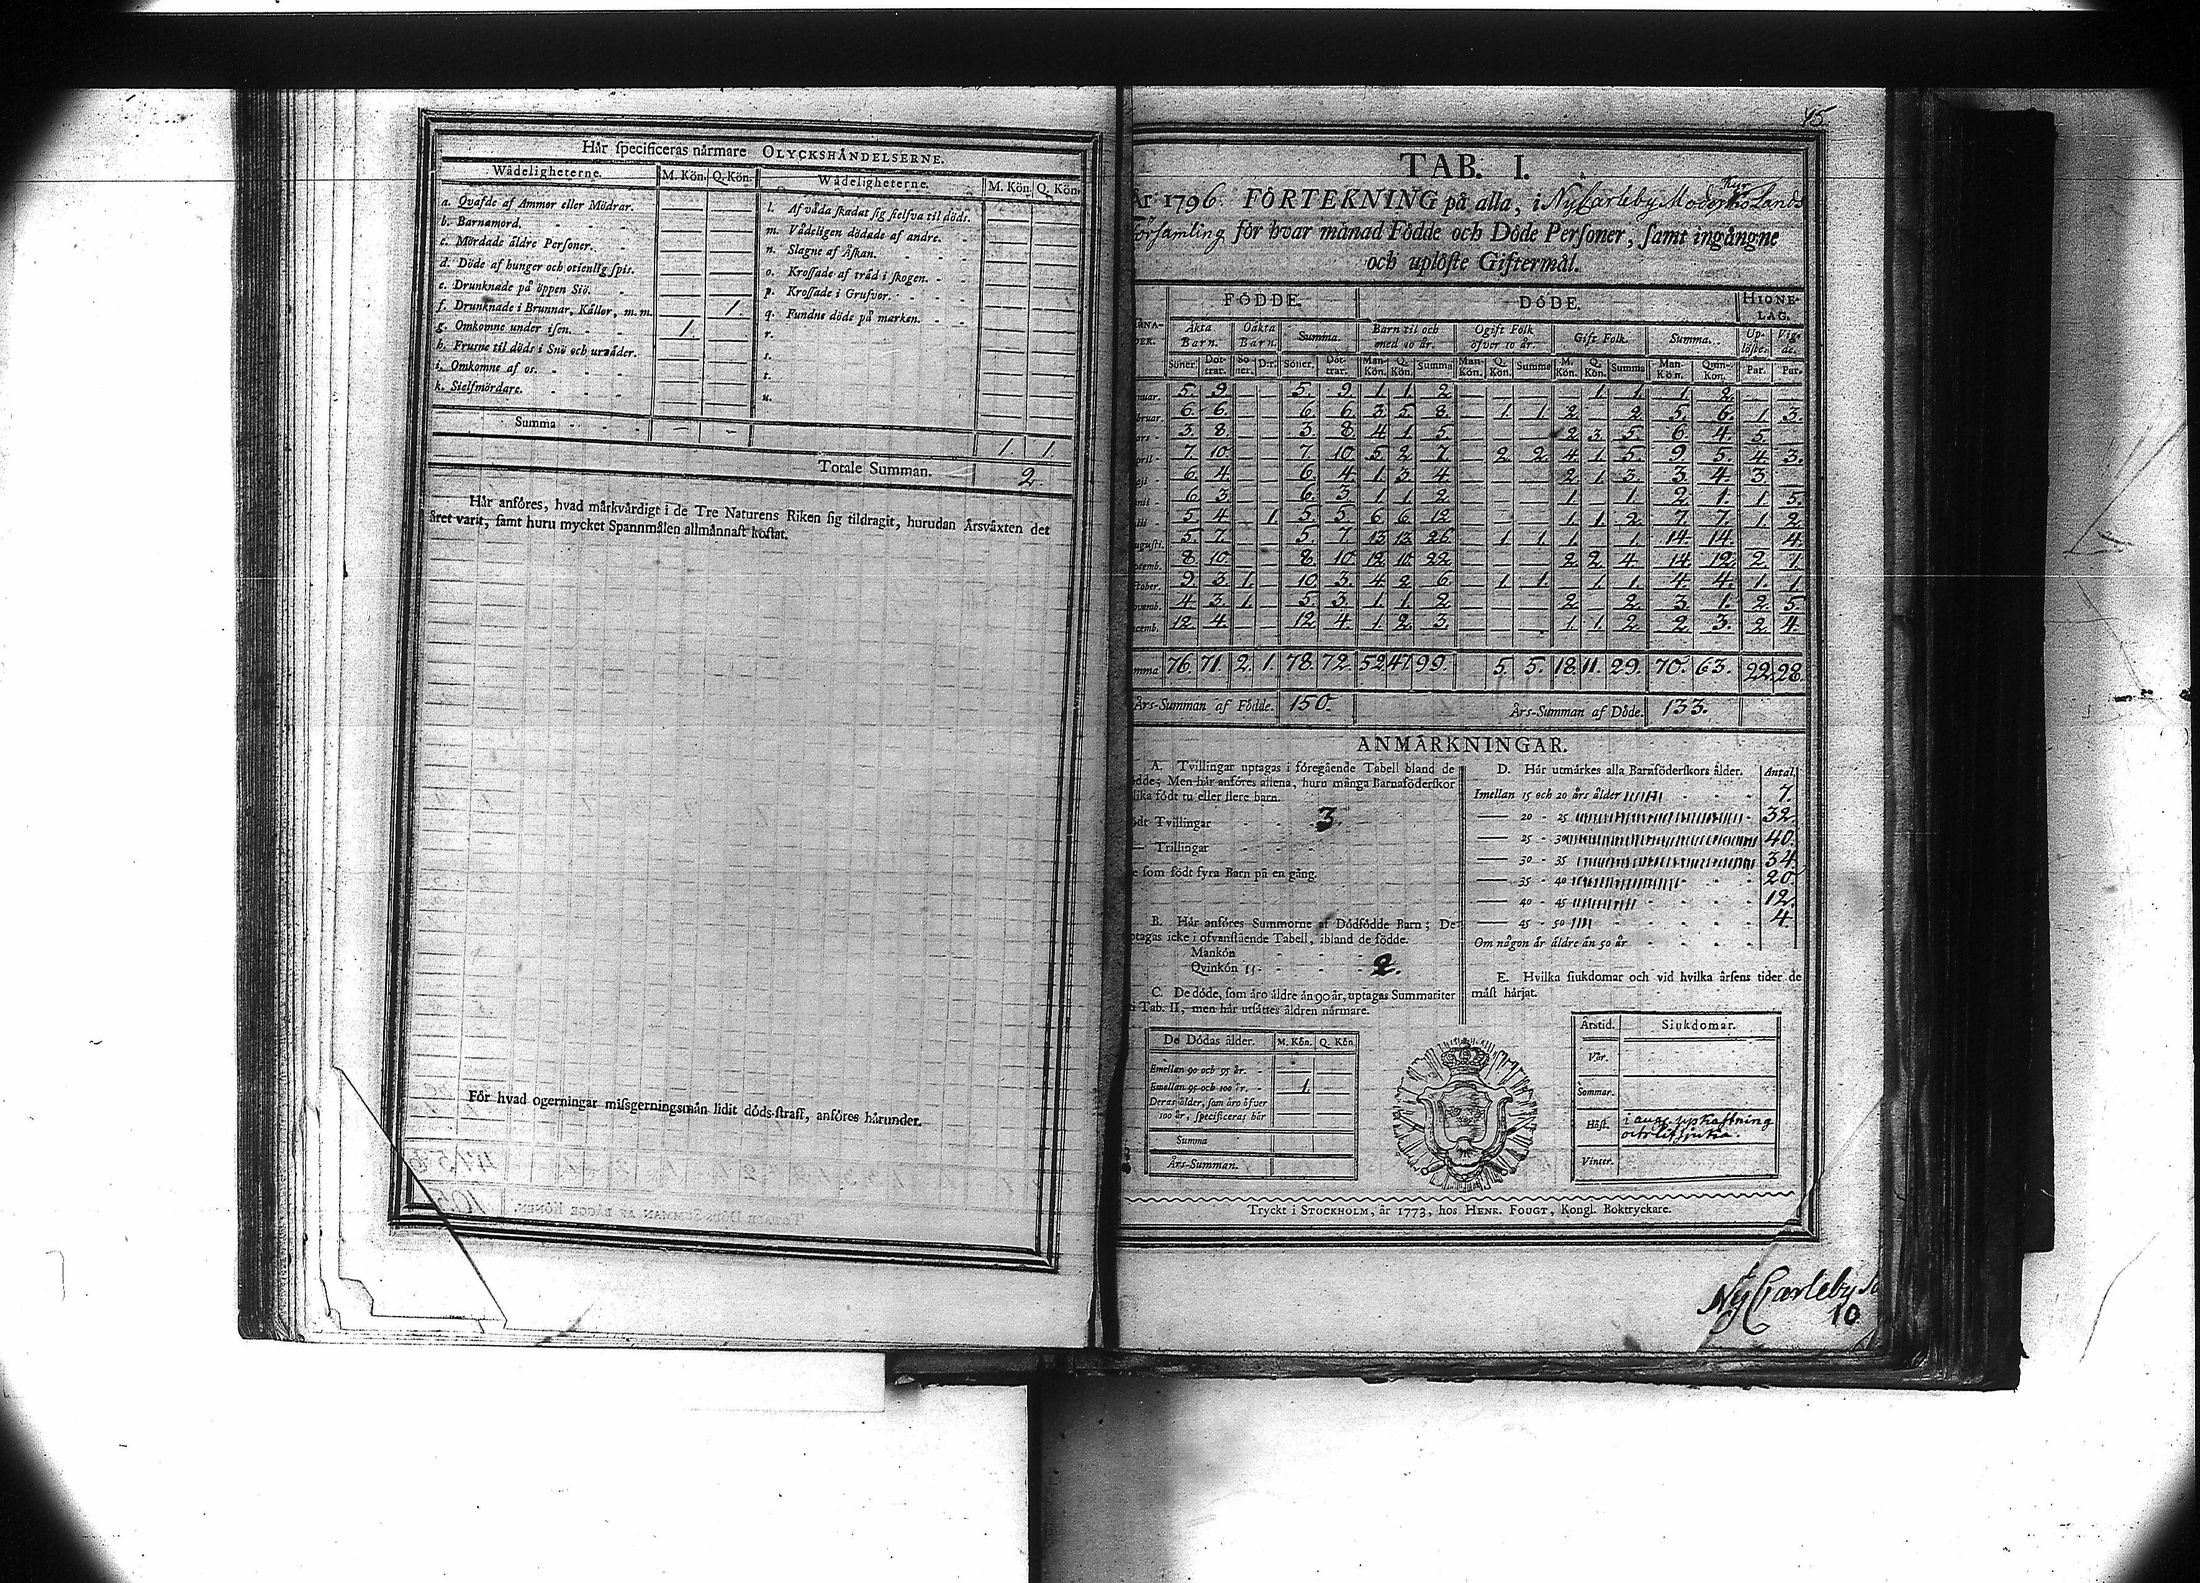 Hår ſpecificeras nårmare OLYCKSHÅNDELSERNE.
Wådeligheterne. M. Kön. Q. Kön. Wådeligheterne. M. Kön. Q. Kön.
a. Qvafde af Ammor eller Mödrar. — —
b. Barnamord. — —
c. Mördade äldre Perſoner. — —
d. Döde af hunger och otienlig ſpis. — —
e. Drunknade på öppen Siö. — —
f. Drunknade i Brunnar, Källor, m.m. — 1.
g. Omkomne under iſen. 1. —
h. Fruſne til döds i Snö och urväder. — —
i. Omkomne af os. — —
k. Sielfmördare. — —
l. Af våda ſkadat ſig ſielfva til döds. — —
m. Vådeligen dödade af andre. — —
n. Slagne af Åſkan. — —
o. Kroſſade af träd i ſkogen. — —
p. Kroſſade i Grufvor. — —
q. Fundne döde på marken. — —
r.
s.
t.
u.
Summa - -
1. 1.
Totale Summan. 2.
Hår anföres, hvad mårkvårdigt i de Tre Naturens Riken ſig tildragit, hurudan Årsvåxten det
året varit, ſamt huru mycket Spannmålen allmånnaſt koſtat.
För hvad ogerningar miſsgerningsmån lidit döds-ſtraff, anföres hårunder.
45
TAB. I.
År 1796. FÖRTEKNING på alla, i NyCarleby Moder Lands
Församling för hvar månad Födde och Döde Perſoner, ſamt ingångne
och uplöſte Giftermål.
FÖDDE. DÖDE. HIONE-
LAG.
Åkta Barn. Oåkta Barn. Summa. Barn til och med 10 år. Ogift Folk öfver 10 år. Gift Folk. Summa. Up-löſte. Vig-de.
Söner. Döt-trar. Sö-ner. Dr. Söner. Döt-trar. Man-Kön. Q. Kön. Summa Man-Kön. Q. Kön. Summa M. Kön. Q. Kön. Summa Man-Kön. Qvin-Kön. Par. Par.
nuar. 5. 9. — — 5. 9. 1. 1. 2. — — — 1. 1. 1. 2. — —
bruar. 6. 6. — — 6. 6. 3. 5. 8. — 1. 1. 2. 2. 5. 6. 1. 3.
ars - 3. 8. — — 3. 8. 4. 1. 5. — — 2. 3. 5. 6. 4. 5.
pril - 7. 10. — — 7. 10. 5. 2. 7. — 2. 2. 4. 1. 5. 9. 5. 4. 3.
aji - 6. 4. — — 6. 4. 1. 3. 4. — — — 2. 1. 3. 3. 4. 3.
unii - 6. 3. — — 6. 3. 1. 1. 2. — — — 1. 1. 2. 1. 1. 5.
ulii - 5. 4. — 1. 5. 5. 6. 6. 12. — — — 1. 1. 2. 7. 7. 1. 2.
uguſti. 5. 7. — — 5. 7. 13. 13. 26. — 1. 1. 1. 1. 14. 14. 4.
ptemb. 8. 10. — — 8. 10. 12. 10. 22. — — — 2. 2. 4. 14. 12. 2. 1.
ctober. 9. 3. 1. — 10. 3. 4. 2. 6. — 1. 1. 1. 1. 4. 4. 1. 1.
ovemb. 4. 3. 1. — 5. 3. 1. 1. 2. — — — 2. 2. 3. 1. 2. 5.
ecemb. 12. 4. — — 12. 4. 1. 2. 3. — — — 1. 1. 2. 2. 3. 2. 4.
mma 76. 71. 2. 1. 78. 72. 52. 47. 99. 5. 5. 18. 11. 29. 70. 63. 22. 28.
Års-Summan af Födde. 150. Års-Summan af Döde. 133.
ANMÅRKNINGAR.
A. Tvillingar uptagas i föregående Tabell bland de
ödde; Men hår anföres allena, huru många Barnaföderſkor
ſlika födt tu eller flere barn.
ödt Tvillingar 3.
— Trillingar
e ſom födt fyra Barn på en gång.
B. Hår anföres Summorne af Dödfödde Barn; De
ptagas icke i ofvanſtående Tabell, ibland de födde.
Mankön
Qvinkön 11 2.
C. De döde, ſom åro åldre ån 90 år, uptagas Summariter
i Tab. II, men hår utſåttes åldren nårmare.
De Dödas ålder. M. Kön. Q. Kön.
Emellan 90 och 95 år. — —
Emellan 95 och 100 år. 1. —
Deras ålder, ſom äro öfver
100 år, ſpecificeras här — —
Summa
Års-Summan.
D. Hår utmårkes alla Barnföderſkors ålder. Antal.
Imellan 15 och 20 års ålder 7.
— 20 - 25 32.
— 25 - 30 40.
— 30 - 35 34.
— 35 - 40 20.
— 40 - 45 12.
— 45 - 50 4.
Om någon är äldre än 50 år
E. Hvilka ſiukdomar och vid hvilka årſens tider de
måſt hårjat.
Årstid. Siukdomar.
Vår.
Sommar.
Höſt. i aug. upkaſtning
och lifsjuka.
Vinter.
Tryckt i STOCKHOLM, år 1773, hos HENR. FOUGT, Kongl. Boktryckare.
NyCarleby
10